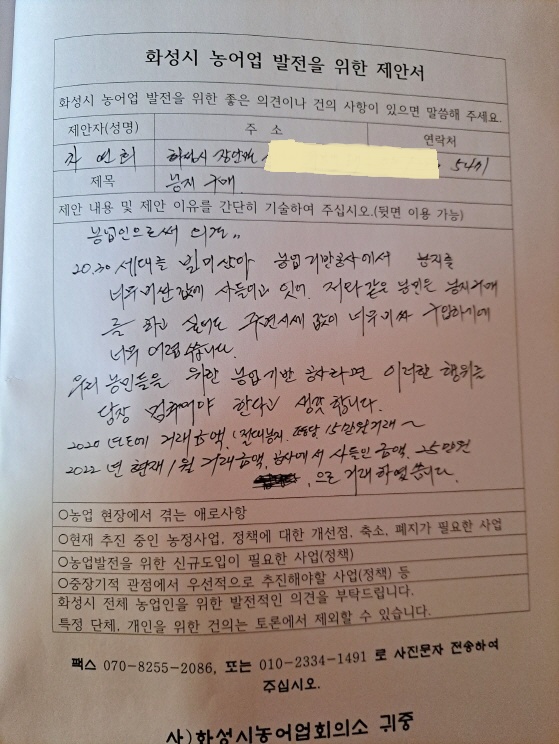 화성시 농어업 발전을 위한 제안서
화성시 농어업 발전을 위한 좋은 의견이나 건의 사항이 있으면 말씀해 주세요.
제안자(성명) 주 소 연락처
차연희 화성시 장안면
제목 농지구매
제안 내용 및 제안 이유를 간단히 기술하여 주십시오.(뒷면 이용 가능)
농업인으로써 의견..
20.30 세대를 빌미삼아 농업기반공사에서 농지를
너무비싼값에 사들이고 있어. 저와같은 농민은 농지구매
를 하고 싶어도 주변시세 값이 너무비싸 구입하기에
너무 어렵습니다.
우리 농민들을 위한 농업기반 공사라면 이러한 행위는
당장 멈춰어야 한다고 생각합니다.
2020년도에 거래금액, (절대농지. 평당 15만원거래~
2022년 현재 1월 거래금액, 공사에서 사들인 금액. 25만원
, 으로 거래하였씁니다.
○농업 현장에서 겪는 애로사항
○현재 추진 중인 농정사업, 정책에 대한 개선점, 축소, 폐지가 필요한 사업
○농업발전을 위한 신규도입이 필요한 사업(정책)
○중장기적 관점에서 우선적으로 추진해야할 사업(정책) 등
화성시 전체 농업인을 위한 발전적인 의견을 부탁드립니다.
특정 단체, 개인을 위한 건의는 토론에서 제외할 수 있습니다.
팩스 070-8255-2086, 또는 010-2334-1491 로 사진문자 전송하여
주십시오.
사)화성시농어업회의소 귀중